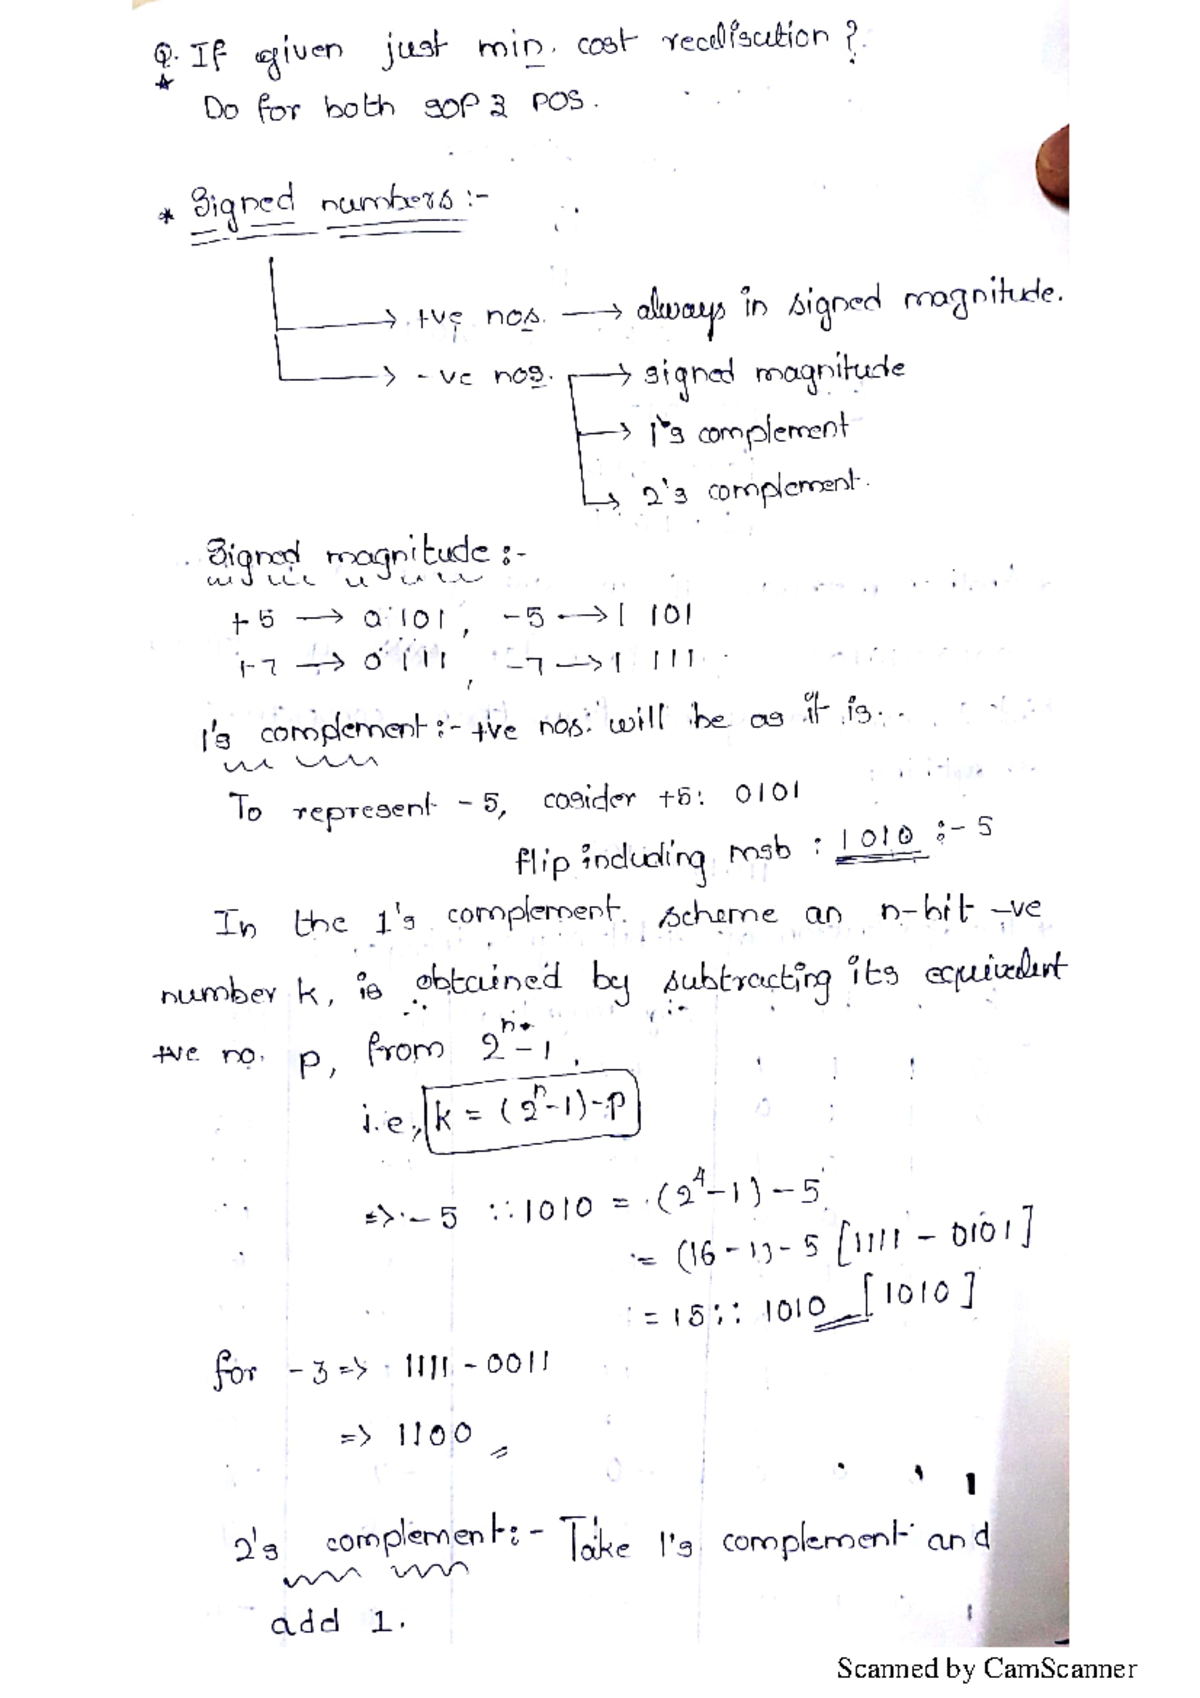 Q. If given just min. cost realisation?
* Do for both SOP & POS.
* Signed numbers :-
→ +ve nos. → always in signed magnitude.
→ -ve nos. → signed magnitude
→ 1's complement
→ 2's complement.
Signed magnitude :-
+5 → 0 101, -5 → 1 101
+7 → 0 111, -7 → 1 111
1's complement :- +ve nos. will be as it is.
To represent -5, cosider +5: 0101
flip including msb : 1010 :- 5
In the 1's complement scheme an n-bit -ve
number k, is obtained by subtracting its equivalent
+ve no. p, from 2^n - 1,
i.e., k = (2^n - 1) - p
=> -5 :: 1010 = (2^4 - 1) - 5
= (16 - 1) - 5 [1111 - 0101]
= 15 :: 1010 [1010]
for -3 => 1111 - 0011
=> 1100
2's complement :- Take 1's complement and
add 1.
Scanned by CamScanner